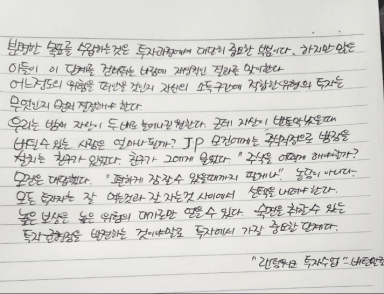 분명한 목표를 수립하는것은 투자과정에서 대단히 중요한 작업이다. 하지만 많은
이들이 이 단계를 건너뛰는 바람에 재앙적인 결과를 맞이한다.
어느정도의 위험을 떠안을 것인지 자신의 소득구간에 적합한 유형의 투자는
무엇인지 먼저 결정해야 한다.
우리는 밤새 자산이 두배로 늘어나길 원한다. 근데 자산이 반토막났을때
버틸수 있는 사람은 얼마나 될까? JP 모건에게는 주식걱정으로 병강을
설치는 친구가 있었다. 친구가 그에게 물었다. "주식을 어떻게 해야할까?
모건은 대답했다. "편하게 잠잘수 있을때까지 팔게나" 농담이 아니다.
모든 투자자는 잘 먹는것과 잘 자는것 사이에서 선택을 내려야 한다.
높은 보상은 높은 위험의 대가로만 얻을수 있다. 숙면을 취할수 있는
투자 균형점을 발견하는 것이야말로 투자에서 가장 중요한 단계다.
"랜덤워크 투자수업" - 버턴말킬